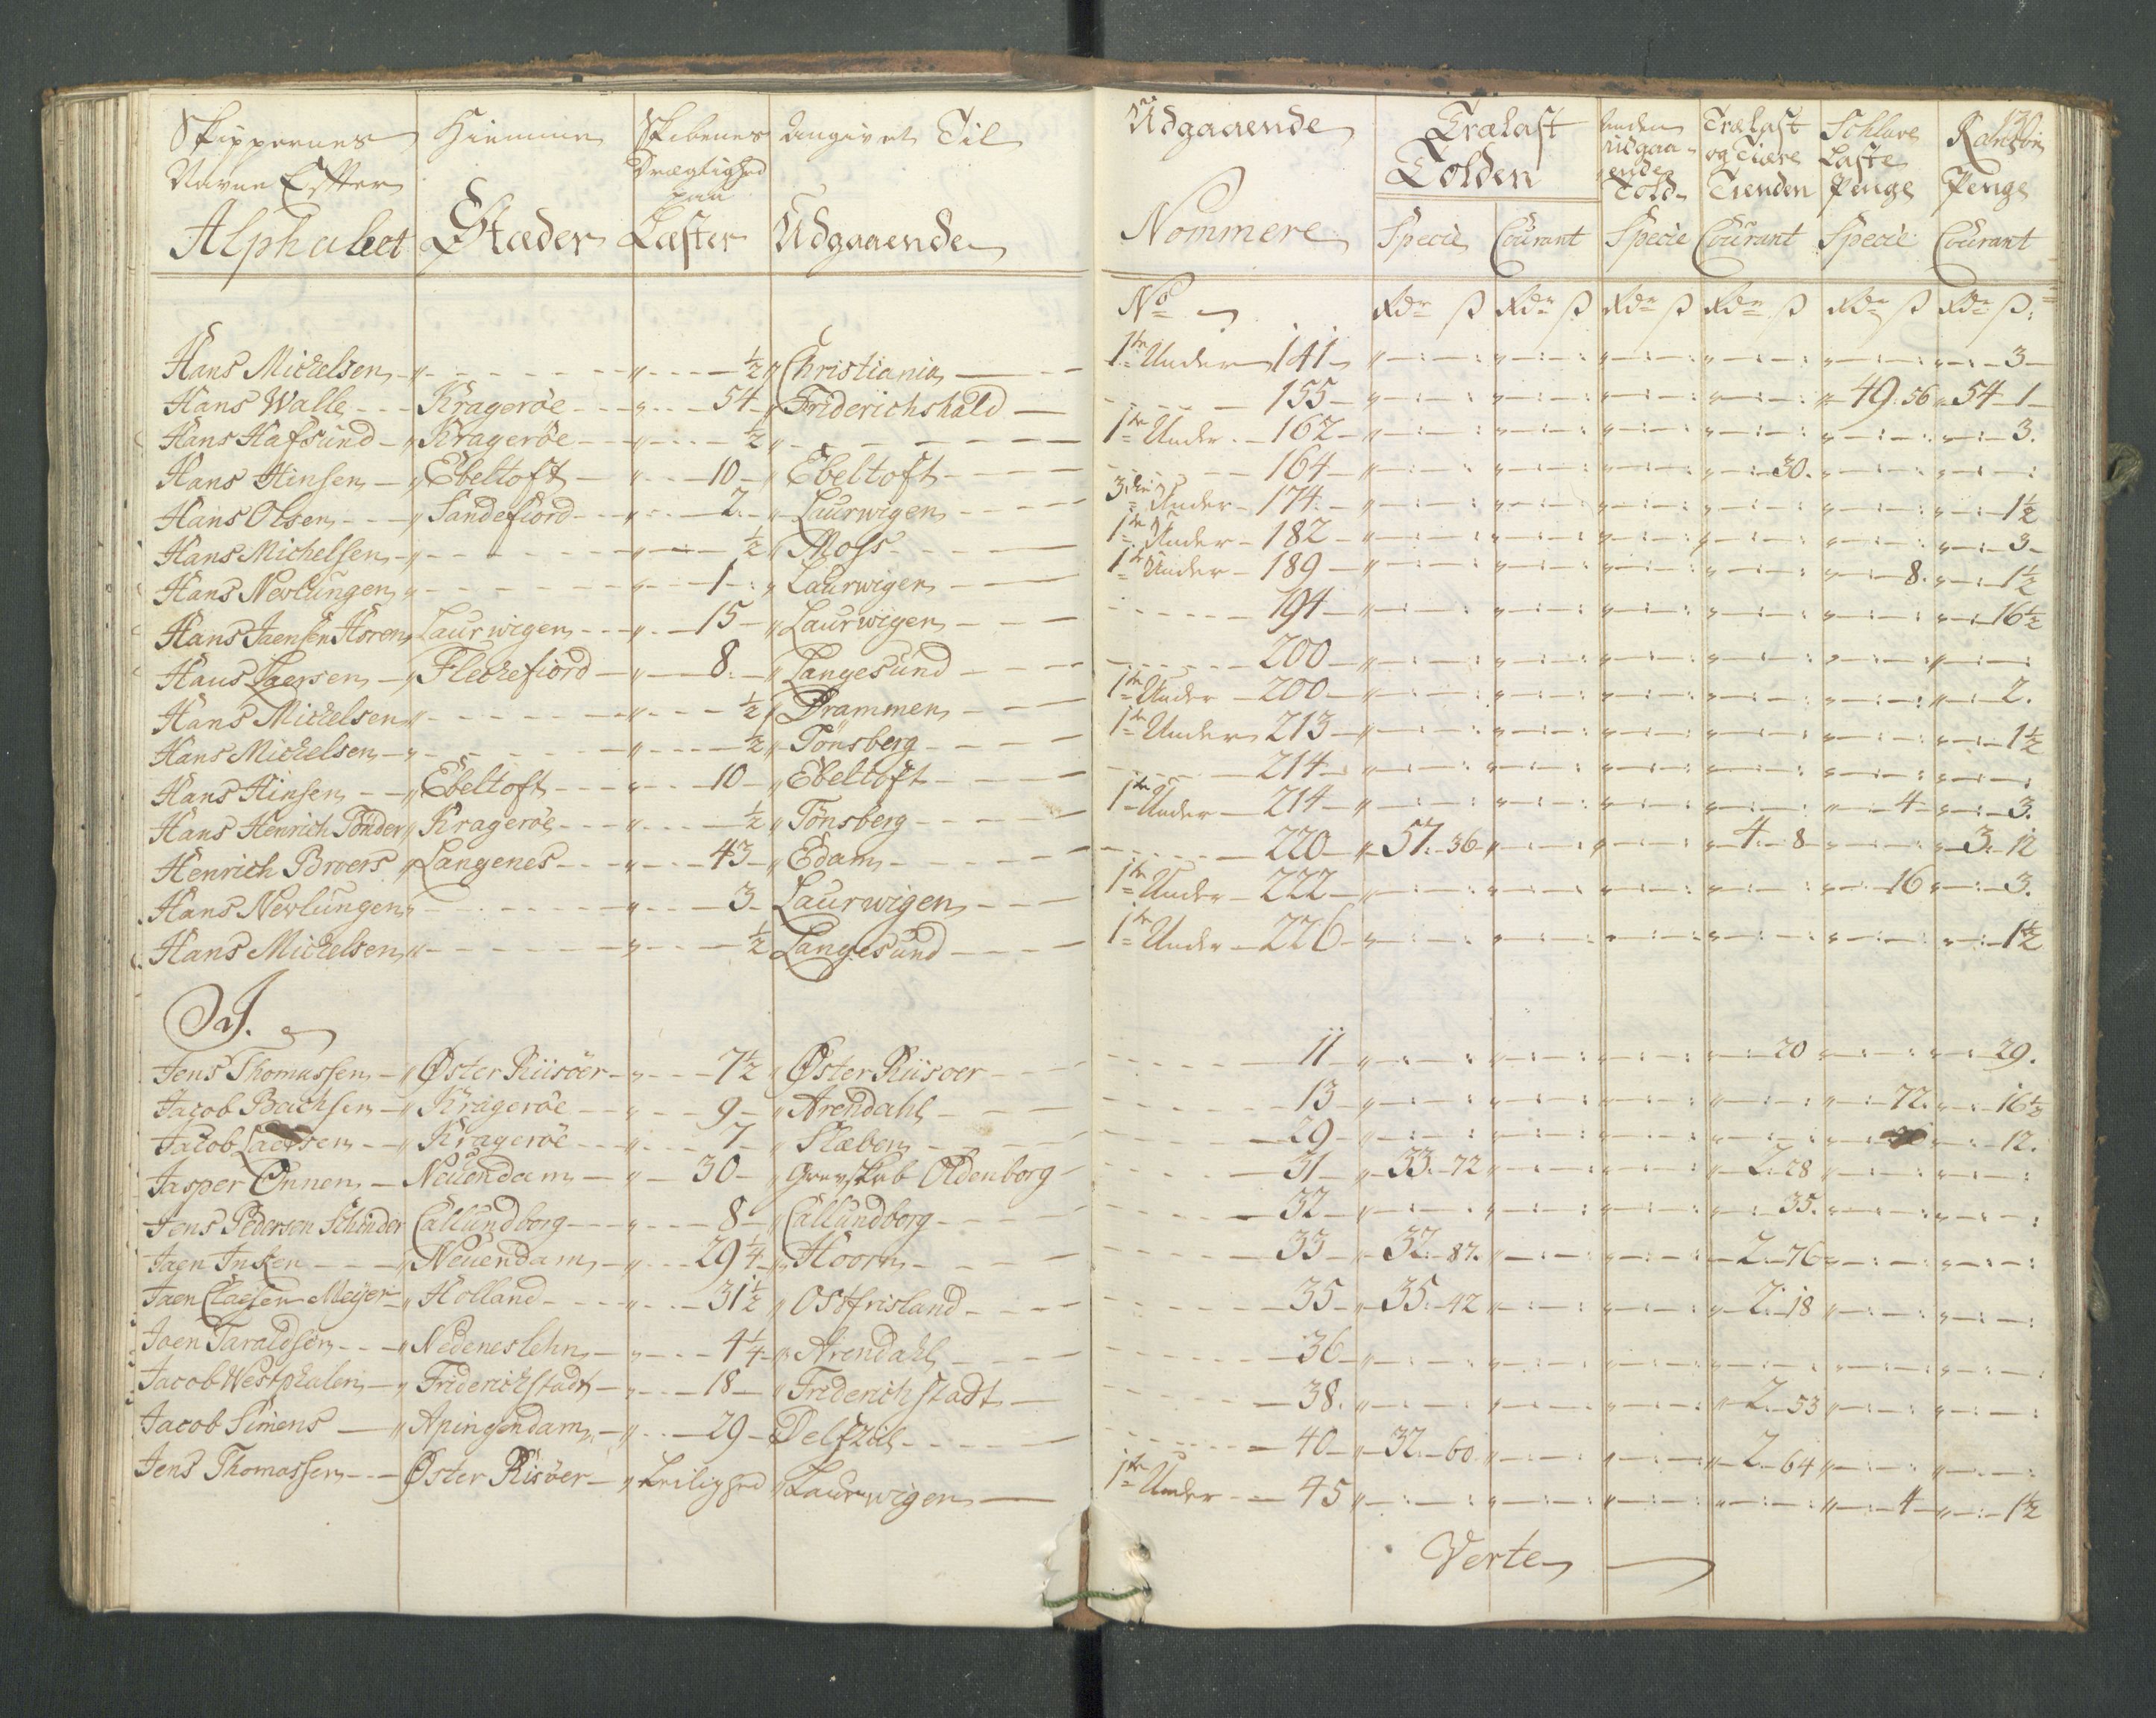 Skippernes Navne Efter Alphabet | Hiemme Stæder | Skibenes Drægtighed paa Læster | Angivet Til Udgaaende | Udgaaende Nommere | Trælast Tolden Specie | Courant | Anden udgaaende Told Specie | Trælast og Tiære Tienden Courant | Schlave Laste Penge Specie | Rantzon Penge Courant
No | Rdr ß | Rdr ß | Rdr ß | Rdr ß | Rdr ß | Rdr ß
Hans Mickelsen " ½ " Christiania 1te Under 141 3
Hans Walle Kragerøe " 54 " Friderichshald 155 49. 56 54 1
Hans Hafsund " Kragerøe " ½ " 1te Under 162 3.
Hans Hinsen " Ebeltoft " 10 " Ebeltoft 164 30.
Hans Olsen " Sandefiord " 2. " Laurwigen 3die Under 174. 1½
Hans Michelsen " ½ " Moss 1te Under 182 3
Hans Nevlungen " 1 " Laurwigen 1te Under 189 8. 1½
Hans Jaensen Laurwigen " 15 " Laurwigen 194 16½
Hans Laersen " Fleckefiord " 8. " Langesund 200
Hans Mickelsen " ½ " Drammen 1te Under 200 2.
Hans Mickelsen " ½ " Tönsberg 1te Under 213 1½
Hans Hinsen " Ebeltoft " 10 " Ebeltoft 214
Hans Henrich Tönder " Kragerøe " ½ " Tönsberg 1te Under 214 4 3.
Henrich Broers " Langenes " 43 " Edam 220 57. 36 4. 8 3. 12
Hans Nevlungen " 3 Laurwigen 1te Under 222 16 3.
Hans Mickelsen " ½ Langesund 1te Under 226 1½
J.
Jens Thomassen " Øster Riisöer " 7½ " Øster Riisoer 11 20 29.
Jacob Bachsen " Kragerøe " 9 " Arendahl 13 72. 16½
Jacob Laersen " Kragerøe " 7 " Slæben 29 12.
Jasper Onnen Neuendam " 30 " Grevskab Oldenborg 31 33. 72 2. 28
Jens Pedersen Schönder Callundborg " 8 " Callundborg 32 35.
Jaen Jnken " Neuendam " 29¼ " Hoorn 33 32. 87. 2. 76
Jaen Claesen Meyer " Holland " 31½ " Ostfrisland 35 35. 42 2. 18
Joen Taraldsen " Nedenes lehn " 4¼ " Arendahl 36
Jacob Westphalen " Friderichstadt " 18 " Friderichstadt 38. 2. 53
Jacob Simens " Apingendam " 29 Delfziil 40 32. 60 2. 64
Jens Thomassen Øster Risöer " Leilighed " Laurwigen 1te Under 45 4 1½
Verte